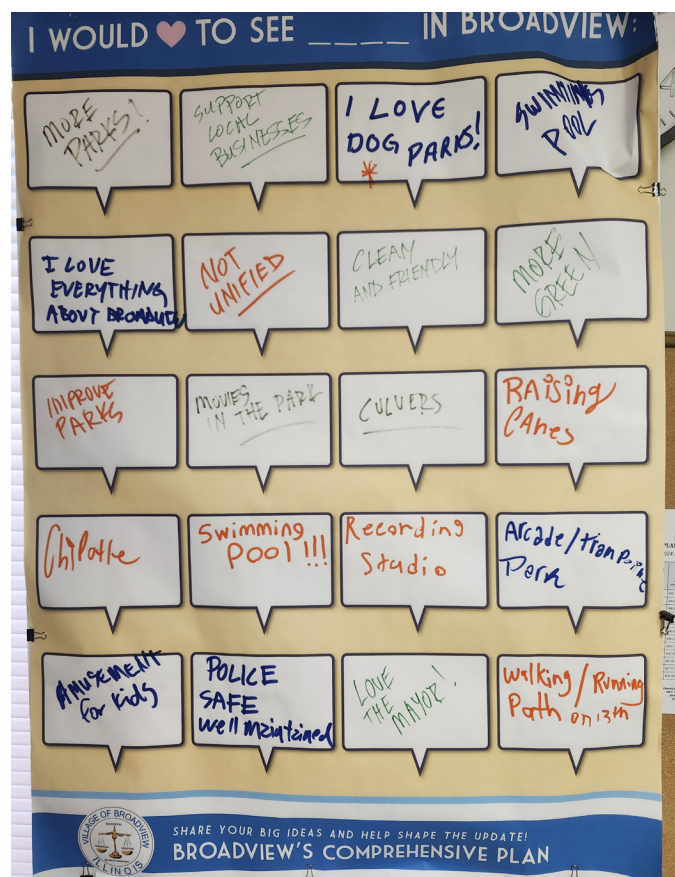 I WOULD ♥ TO SEE ____ IN BROADVIEW:
MORE
PARKS!
SUPPORT
LOCAL
BUSINESSES
I LOVE
DOG PARKS!
*
SWIMMING
POOL
I LOVE
EVERYTHING
ABOUT BROADVIEW
NOT
UNIFIED
CLEAN
AND FRIENDLY
MORE
GREEN
IMPROVE
PARKS
MOVIES
IN THE PARK
CULVERS
RAiSing
CAnes
Chipotle
Swimming
POOl!!!
Recording
Studio
Arcade/trampoline
Park
AMUSEMENT
for kids
POLICE
SAFE
Well Maintained
LOVE
THE
MAYOR!
Walking/Running
Path on 13th
VILLAGE OF BROADVIEW
ILLINOIS
SHARE YOUR BIG IDEAS AND HELP SHAPE THE UPDATE!
BROADVIEW'S COMPREHENSIVE PLAN